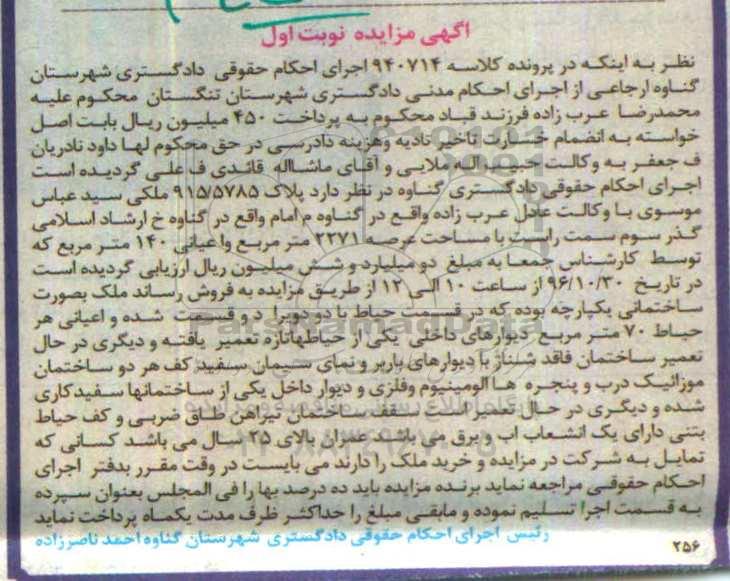 آگهی مزایده نوبت اول
نظر به اینکه در پرونده کلاسه ۹۴۰۷۱۴ اجرای احکام حقوقی دادگستری شهرستان
گناوه ارجاعی از اجرای احکام مدنی دادگستری شهرستان تنگستان محکوم علیه
محمدرضا عرب زاده فرزند قباد محکوم به پرداخت ۴۵۰ میلیون ریال بابت اصل
خواسته به انضمام خسارت تاخیر تادیه وهزینه دادرسی در حق محکوم لها داود نادریان
ف جعفر به وکالت حبیب اله ملایی و آقای ماشااله قائدی ف علی گردیده است
اجرای احکام حقوقی دادگستری گناوه در نظر دارد پلاک ۹۱۵/۵۷۸۵ ملکی سید عباس
موسوی با وکالت عادل عرب زاده واقع در گناوه م امام واقع در گناوه خ ارشاد اسلامی
گذر سوم سمت راست با مساحت عرصه ۲۳۷۱ متر مربع واعیانی ۱۴۰ متر مربع که
توسط کارشناس جمعا به مبلغ دو میلیارد و شش میلیون ریال ارزیابی گردیده است
در تاریخ ۹۶/۱۰/۳۰ از ساعت ۱۰ الی ۱۲ از طریق مزایده به فروش رساند ملک بصورت
ساختمانی یکپارچه بوده که در قسمت حیاط با دو دوبرا د و قسمت شده و اعیانی هر
حیاط ۷۰ متر مربع دیوارهای داخلی یکی از حیاطهاتازه تعمیر یافته و دیگری در حال
تعمیر ساختمان فاقد شناژ با دیوارهای باربر و نمای سیمان سفید کف هر دو ساختمان
موزائیک درب و پنجره ها آلومینیوم وفلزی و دیوار داخل یکی از ساختمانها سفیدکاری
شده و دیگری در حال تعمیر است . سقف ساختمان تیراهن طاق ضربی و کف حیاط
بتنی دارای یک انشعاب اب و برق می باشد عمران بالای ۲۵ سال می باشد کسانی که
تمایل به شرکت در مزایده و خرید ملک را دارند می بایست در وقت مقرر بدفتر اجرای
احکام حقوقی مراجعه نماید برنده مزایده باید ده درصد بها را فی المجلس بعنوان سپرده
به قسمت اجرا تسلیم نموده و مابقی مبلغ را حداکثر ظرف مدت یکماه پرداخت نماید
رئیس اجرای احکام حقوقی دادگستری شهرستان گناوه احمد ناصرزاده
۲۵۶
ParsNamadData